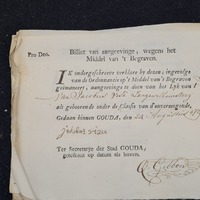 Pro Deo.
Billet van aangeevinge, wegens het
Middel van 't Begraven.
IK ondergeschreeve verklare by dezen, ingevolge
van de Ordonnantie op 't Middel van 't Begraven
geëmaneert, aangevinge te doen van het Lyk van
Jan
als gehoorende onder de Classis van d'onvermogende,
Gedaan binnen GOUDA, den 24 Augustus
Ter Secretarye der Stad GOUDA,
geteikent op datum als boven.